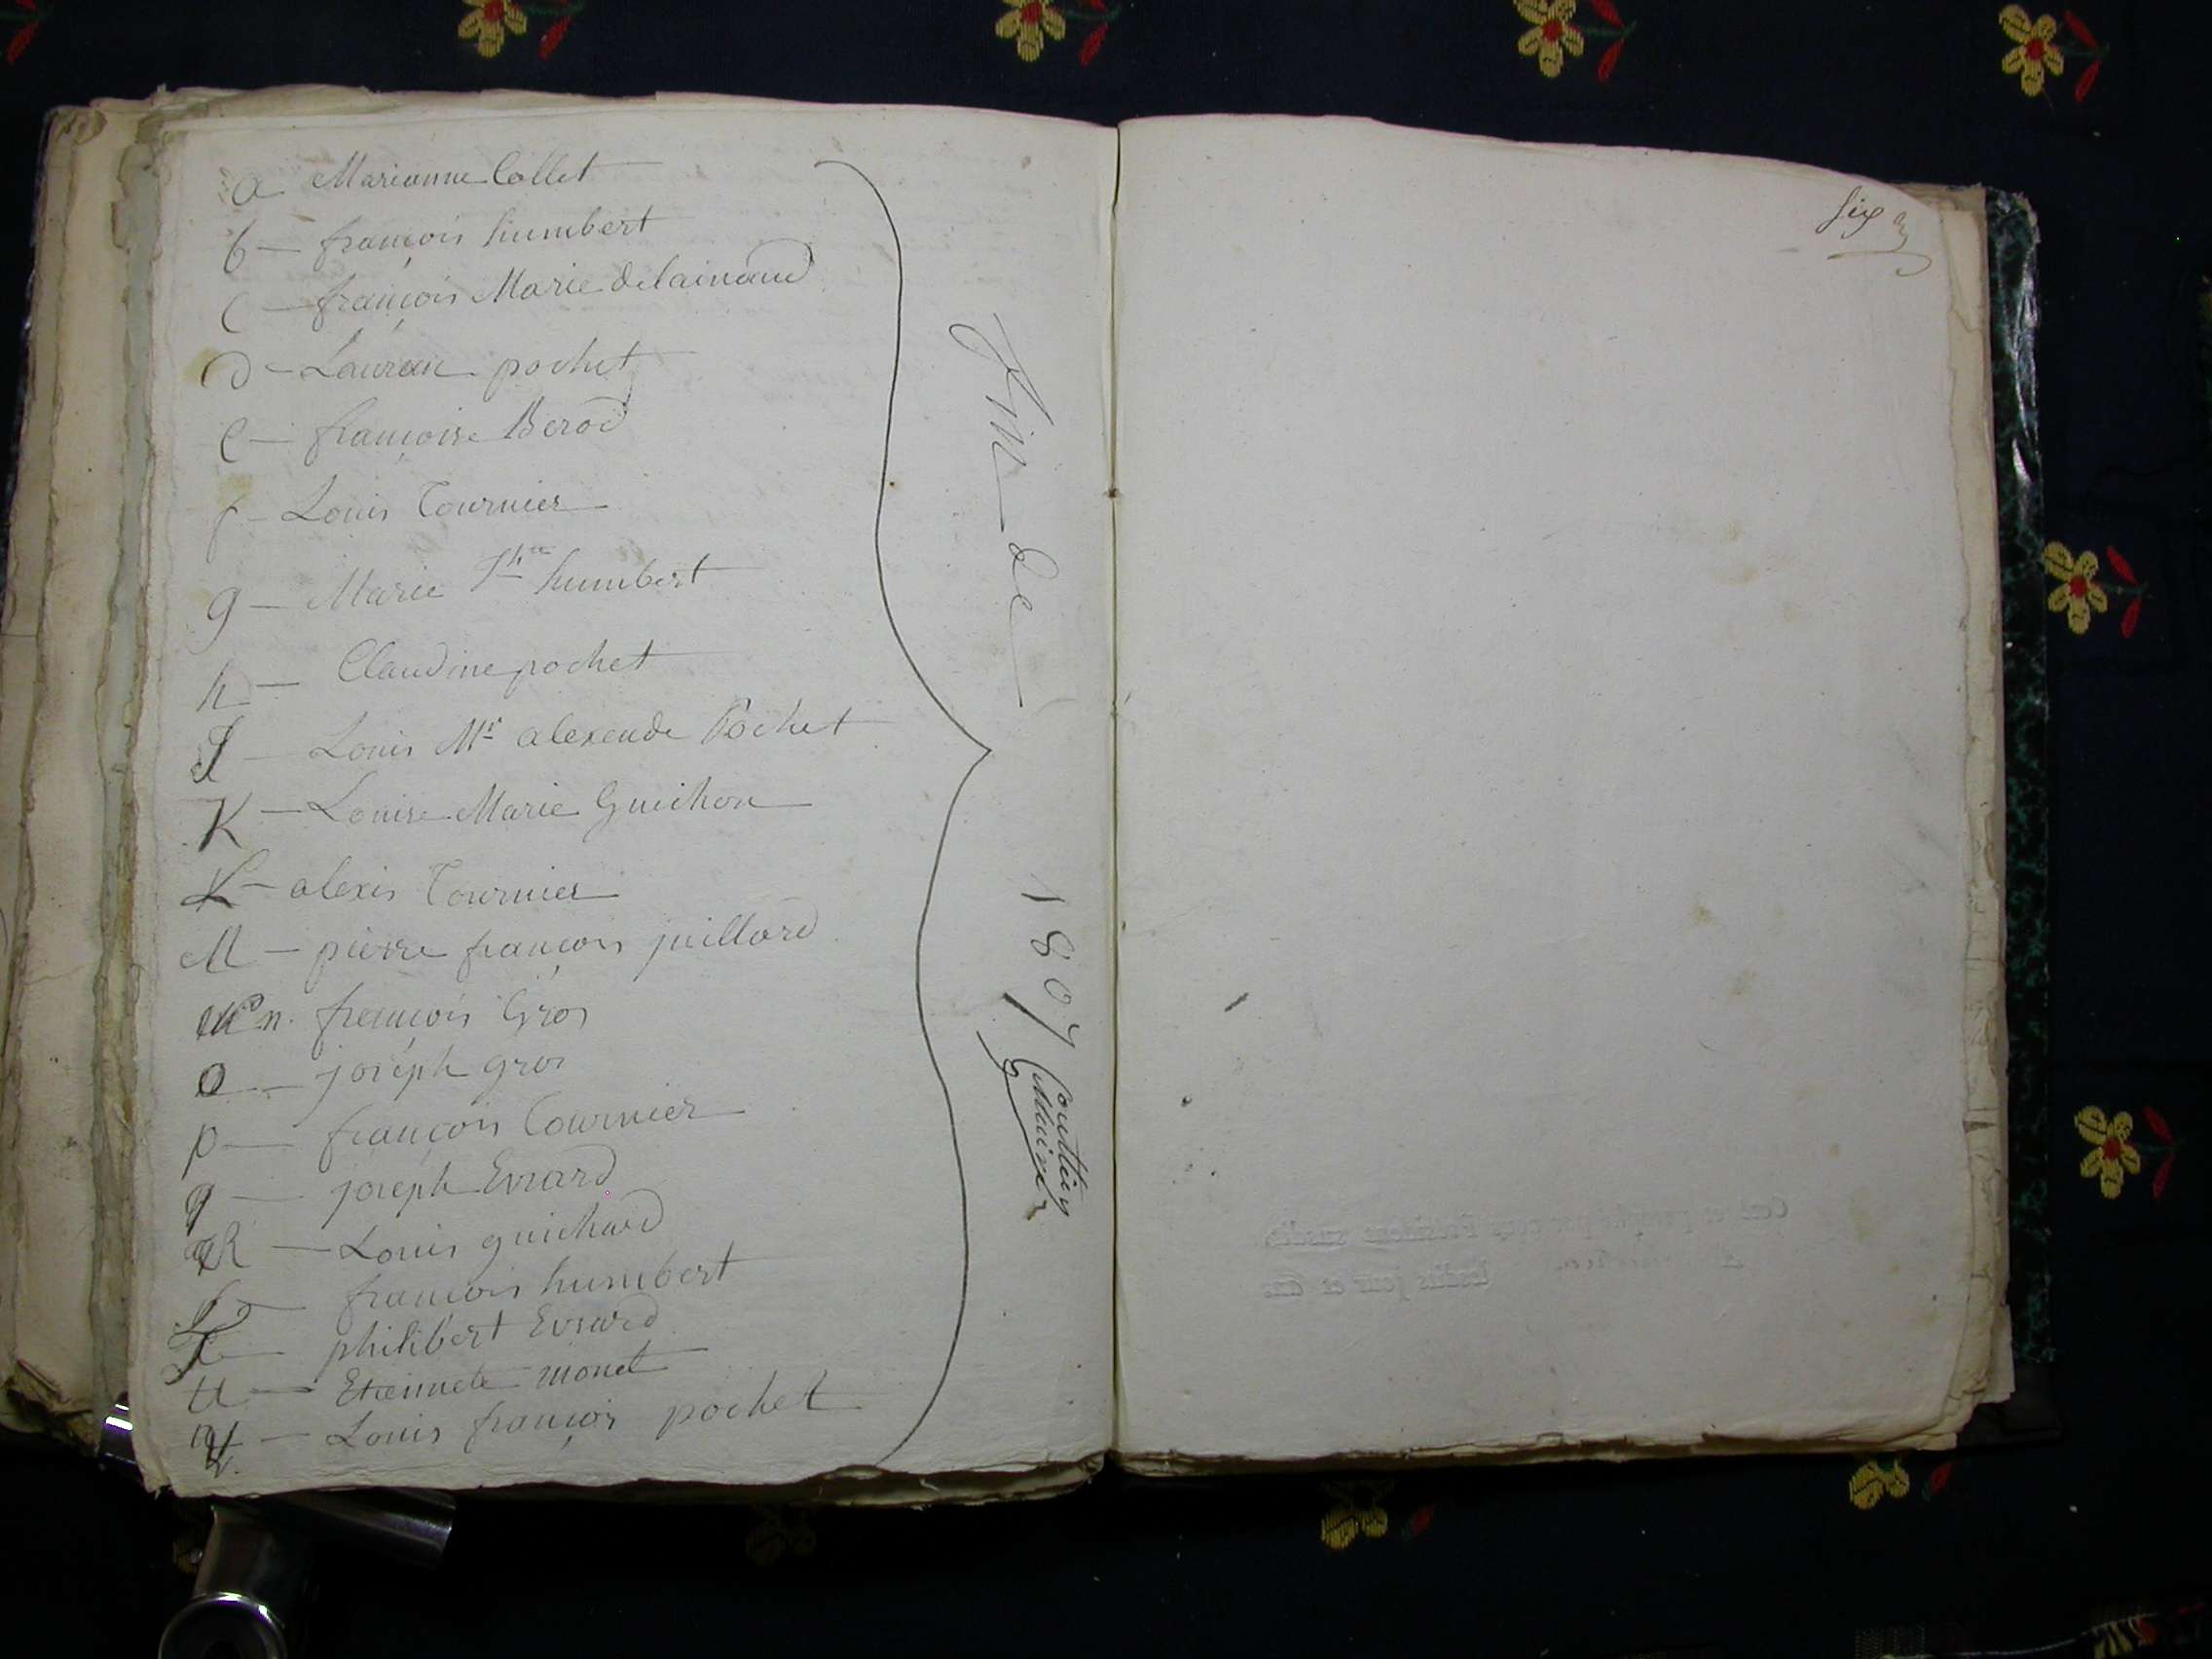 a Marianne Collet
b — françois humbert
c — françois Marie delainaud
d — Lauran pochet
e — françoise Berod
f — Louis Tournier
g — Marie Th humbert
h — Claudine pochet
J — Louis Mr alexende Pochet
K — Louise Marie Guichon
L — alexis Tournier
M — pierre françois juillard
n. françois Gros
o — joseph gros
p — françois Tournier
q — joseph Evrard
R — Louis guichard
françois humbert
philibert Evrard
U — Etiennete monet
Louis françois pochet
fin de 1807
Maire
six